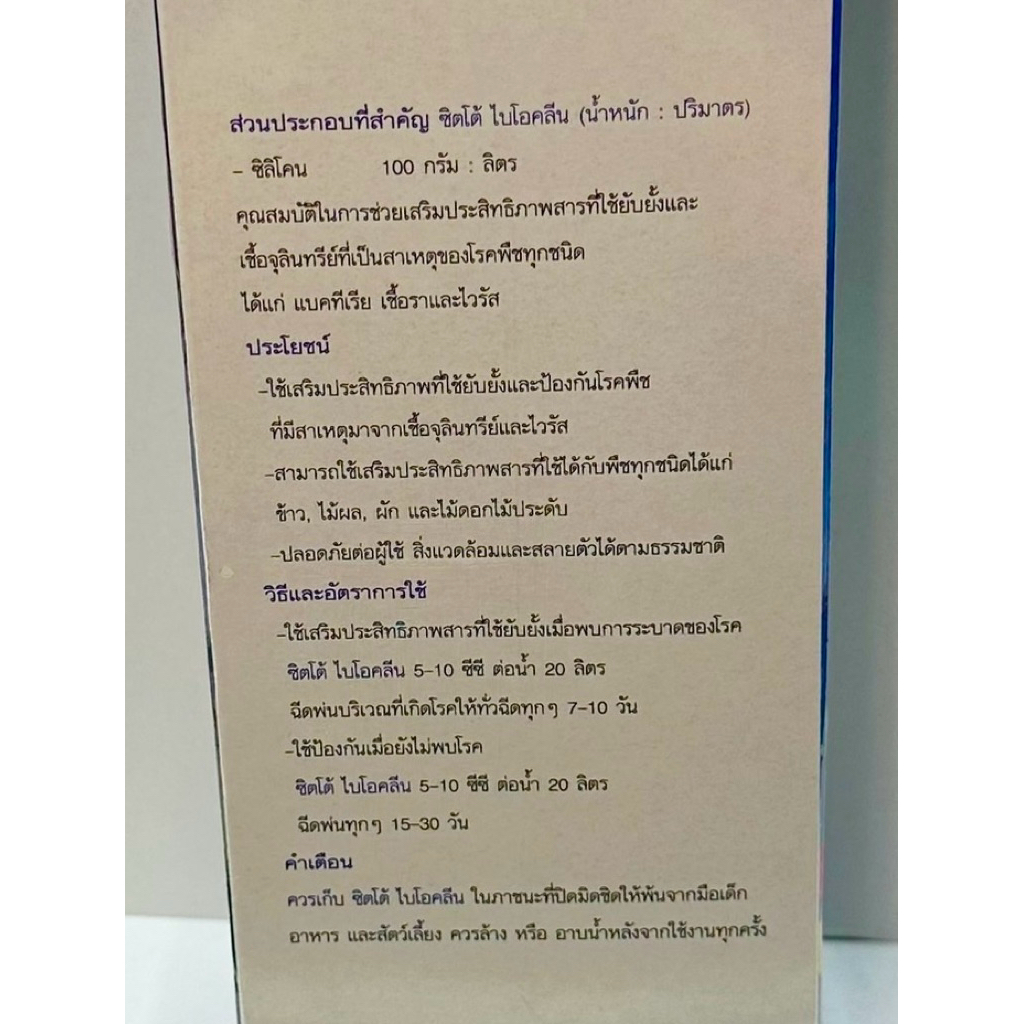 ส่วนประกอบที่สำคัญ ซิตโต้ ไบโอคลีน (น้ำหนัก : ปริมาตร)
- ซิลิโคน 100 กรัม : ลิตร
คุณสมบัติในการช่วยเสริมประสิทธิภาพสารที่ใช้ยับยั้งและ
เชื้อจุลินทรีย์ที่เป็นสาเหตุของโรคพืชทุกชนิด
ได้แก่ แบคทีเรีย เชื้อราและไวรัส
ประโยชน์
-ใช้เสริมประสิทธิภาพที่ใช้ยับยั้งและป้องกันโรคพืช
ที่มีสาเหตุมาจากเชื้อจุลินทรีย์และไวรัส
-สามารถใช้เสริมประสิทธิภาพสารที่ใช้ได้กับพืชทุกชนิดได้แก่
ข้าว, ไม้ผล, ผัก และไม้ดอกไม้ประดับ
-ปลอดภัยต่อผู้ใช้ สิ่งแวดล้อมและสลายตัวได้ตามธรรมชาติ
วิธีและอัตราการใช้
-ใช้เสริมประสิทธิภาพสารที่ใช้ยับยั้งเมื่อพบการระบาดของโรค
ซิตโต้ ไบโอคลีน 5-10 ซีซี ต่อน้ำ 20 ลิตร
ฉีดพ่นบริเวณที่เกิดโรคให้ทั่วฉีดทุกๆ 7-10 วัน
-ใช้ป้องกันเมื่อยังไม่พบโรค
ซิตโต้ ไบโอคลีน 5-10 ซีซี ต่อน้ำ 20 ลิตร
ฉีดพ่นทุกๆ 15-30 วัน
คำเตือน
ควรเก็บ ซิตโต้ ไบโอคลีน ในภาชนะที่ปิดมิดชิดให้พ้นจากมือเด็ก
อาหาร และสัตว์เลี้ยง ควรล้าง หรือ อาบน้ำหลังจากใช้งานทุกครั้ง